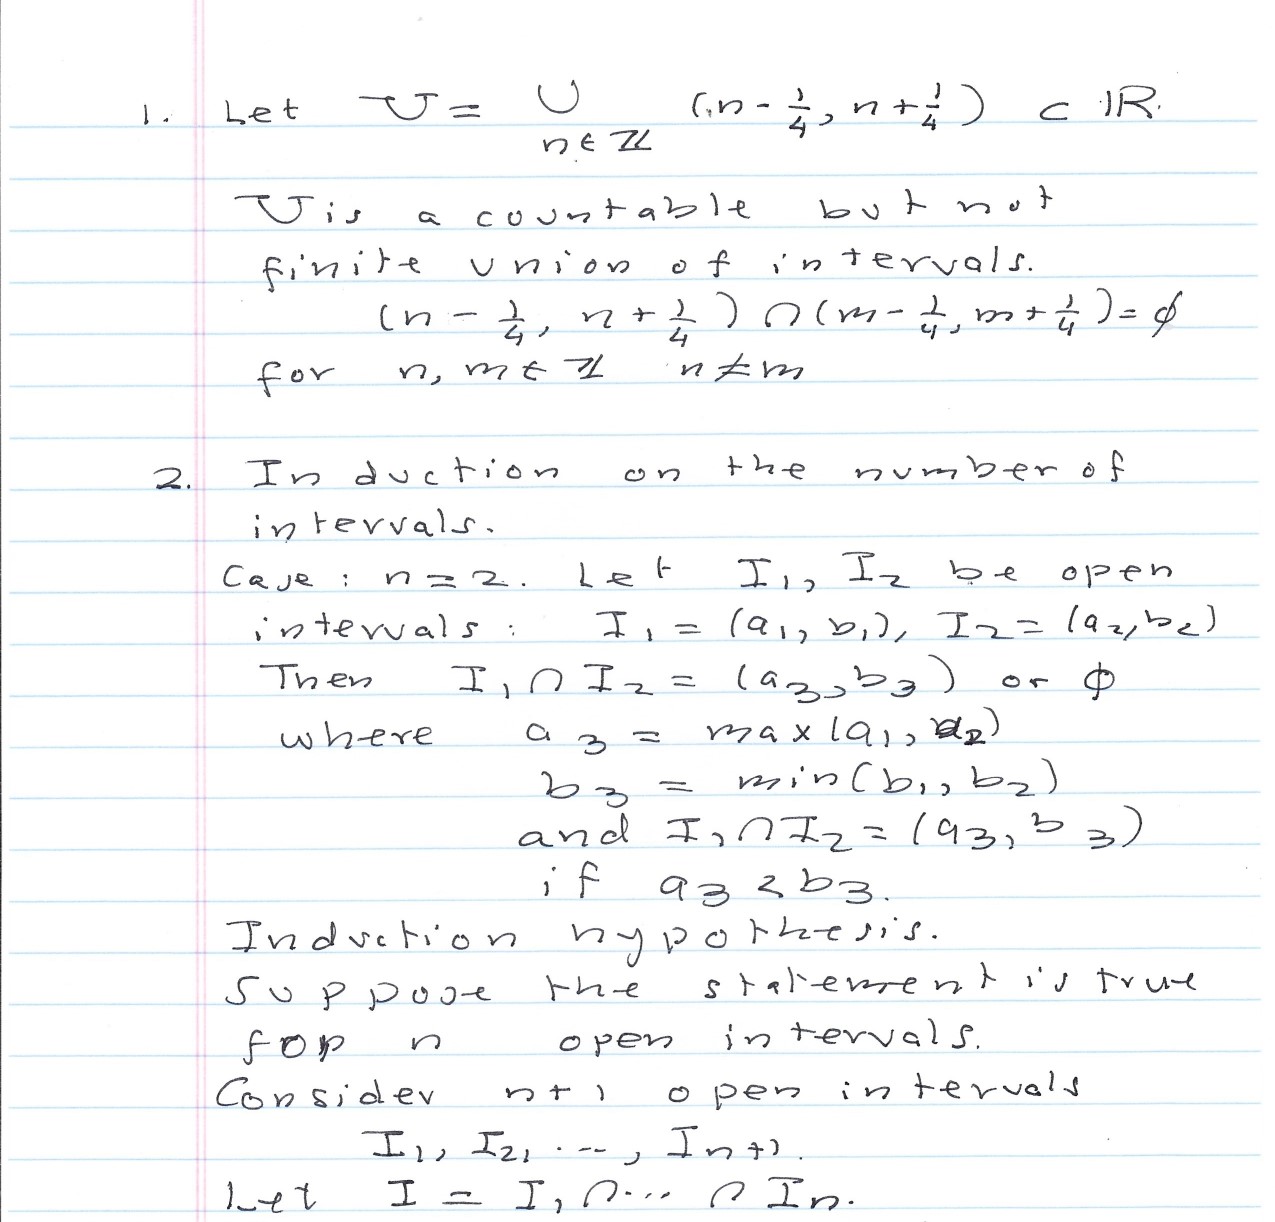 1. Let U = ∪ (n - 1/4, n + 1/4) ⊂ ℝ.
n ∈ ℤ
U is a countable but not
finite union of intervals.
(n - 1/4, n + 1/4) ∩ (m - 1/4, m + 1/4) = ∅
for n, m ∈ ℤ n ≠ m
2. Induction on the number of
intervals.
Case: n = 2. Let I₁, I₂ be open
intervals: I₁ = (a₁, b₁), I₂ = (a₂, b₂)
Then I₁ ∩ I₂ = (a₃, b₃) or ∅
where a₃ = max(a₁, a₂)
b₃ = min(b₁, b₂)
and I₁ ∩ I₂ = (a₃, b₃)
if a₃ < b₃.
Induction hypothesis.
Suppose the statement is true
for n open intervals.
Consider n+1 open intervals
I₁, I₂, ..., Iₙ₊₁.
Let I = I₁ ∩ ... ∩ Iₙ.